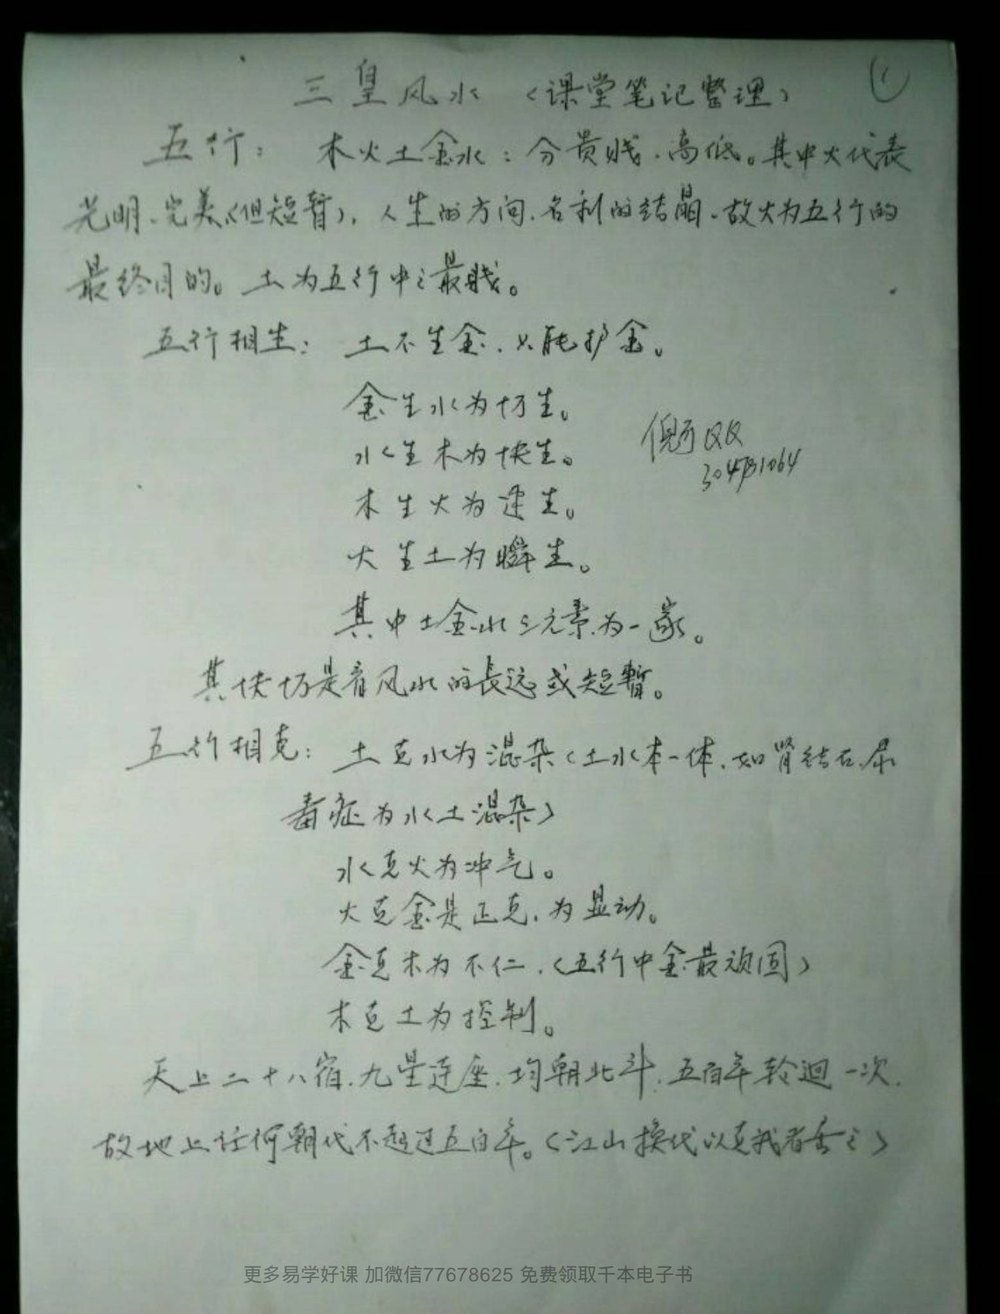 三皇风水 (课堂笔记整理)
五行: 木火土金水: 分贵贱、高低。其中火代表
光明、完美(但短暂), 人生的方向、名利的结晶、故火为五行的
最终目的。土为五行中之最贱。
五行相生: 土不生金、只能护金。
金生水为切生。
水生木为快生。
木生火为速生。
火生土为瞬生。
其中土金水三元素为一家。
其快切是看风水的長远或短暂。
五行相克: 土克水为混杂(土水本一体、如肾结石、尿
毒症为水土混杂)
水克火为冲气。
火克金是正克、为显动。
金克木为不仁、(五行中金最顽固)
木克土为控制。
天上二十八宿、九星连座、均朝北斗、五百年轮迴一次、
故地上任何朝代不超过五百年。(江山换代以克我者季之)
QQ
更多易学好课 加微信77678625 免费领取千本电子书